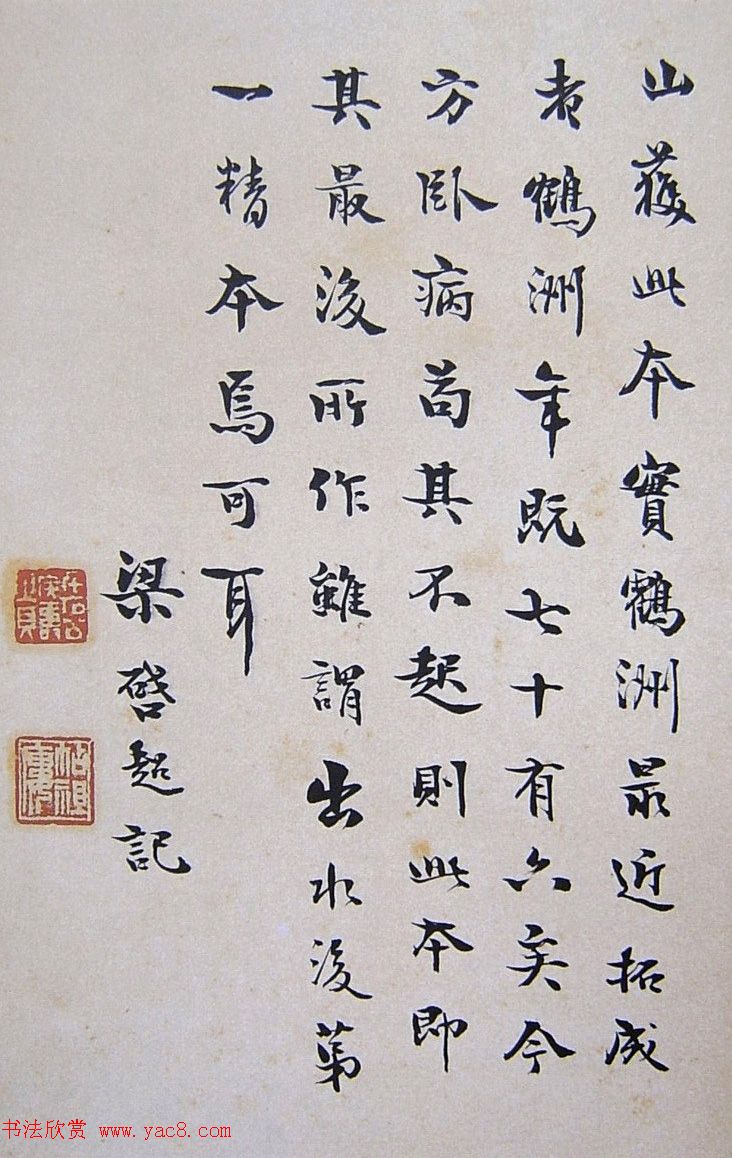 山獲此本實鶴洲最近拓成
者鶴洲年既七十有六矣今
方臥病苟其不起則此本即
其最後所作雖謂出水後第
一精本焉可耳
梁啓超記
书法欣赏 www.yac8.com